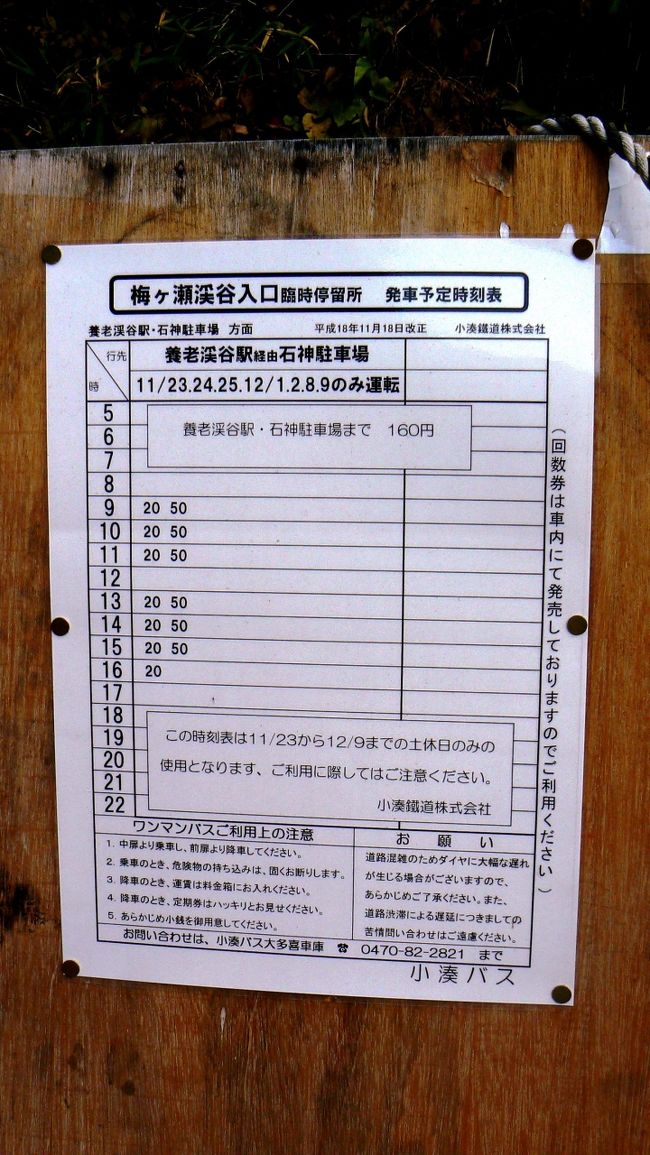 梅ヶ瀬渓谷入口臨時停留所　発車予定時刻表
養老渓谷駅・石神駐車場　方面　平成18年11月18日改正　小湊鐵道株式会社
行先
時
養老渓谷駅経由石神駐車場
11/23.24.25.12/1.2.8.9のみ運転
5
養老渓谷駅・石神駐車場まで　160円
6
7
8
9　20　50
10　20　50
11　20　50
12
13　20　50
14　20　50
15　20　50
16　20
17
18
この時刻表は11/23から12/9までの土休日のみの
使用となります、ご利用に際してはご注意ください。
小湊鐵道株式会社
19
20
21
22
（回数券は車内にて発売しておりますのでご利用ください）
ワンマンバスご利用上の注意
1. 中扉より乗車し、前扉より降車してください。
2. 乗車のとき、危険物の持ち込みは、固くお断りします。
3. 降車のとき、運賃は料金箱にお入れください。
4. 降車のとき、定期券はハッキリとお見せください。
5. あらかじめ小銭を御用意してください。
お　願　い
道路混雑のためダイヤに大幅な遅れ
が生じる場合がございますので、
あらかじめご了承ください。また、
道路渋滞による遅延につきましての
苦情問い合わせはご遠慮ください。
お問い合わせは、小湊バス大多喜車庫　☎　0470-82-2821　まで
小湊バス